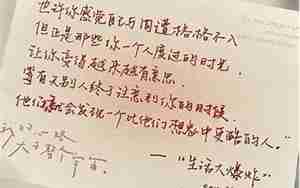 也许你感觉自己与周遭格格不入
但正是那些你一个人度过的时光，
让你变得越来越有意思，
等有天别人终于注意到你的时候，
他们就会发现一个比他们想象中更酷的人。"
——"生活大爆炸"